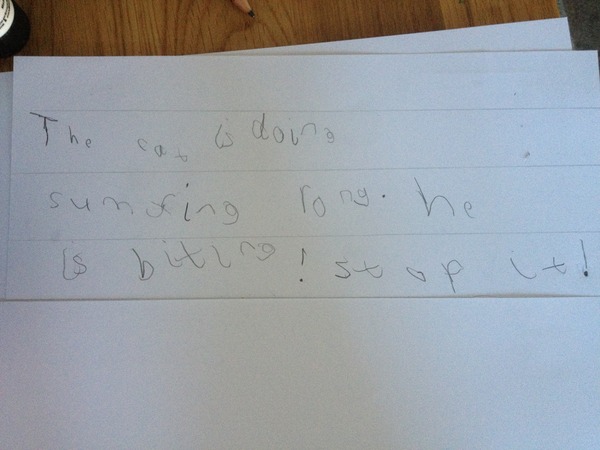 The cat is doing
sumfing rong. he
is biting! stop it!